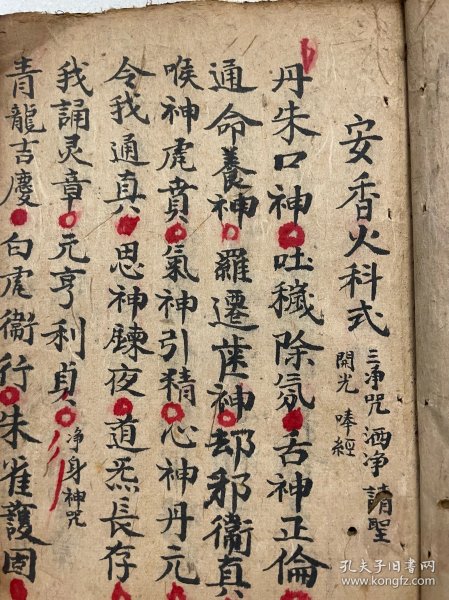 安香火科式
三净咒 洒净 請聖
開光 唪經
丹朱口神吐穢除氛舌神正倫
通命養神羅遷歯神却邪衞真
喉神虎賁氣神引精心神丹元
令我通真思神鍊夜道炁長存
我誦灵章元亨利貞净身神咒
青龍吉慶白虎衞行朱雀護固
孔夫子旧书网
www.kongfz.com